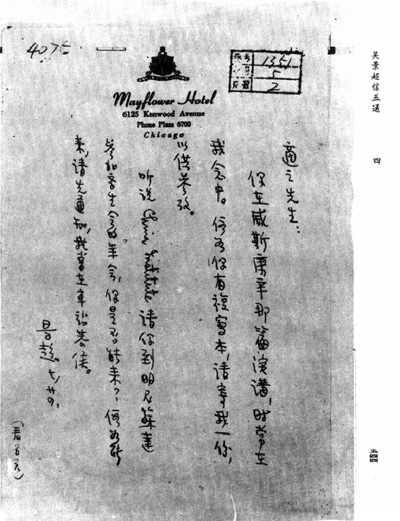 4075
1351
5
2
Mayflower Hotel
6125 Kenwood Avenue
Phone Plaza 6700
Chicago
吳景超信五通
四
適之先生：
你在威斯康辛那篇演講，时常在
我念中。如你有複寫本，請寄我一份，
以供參攷。
听说 China Institute 请你到明尼蘇達
参加學生会的年会，你是否能来？如能
来，请先通知，我當在車站恭候。
景超。七，廿四。